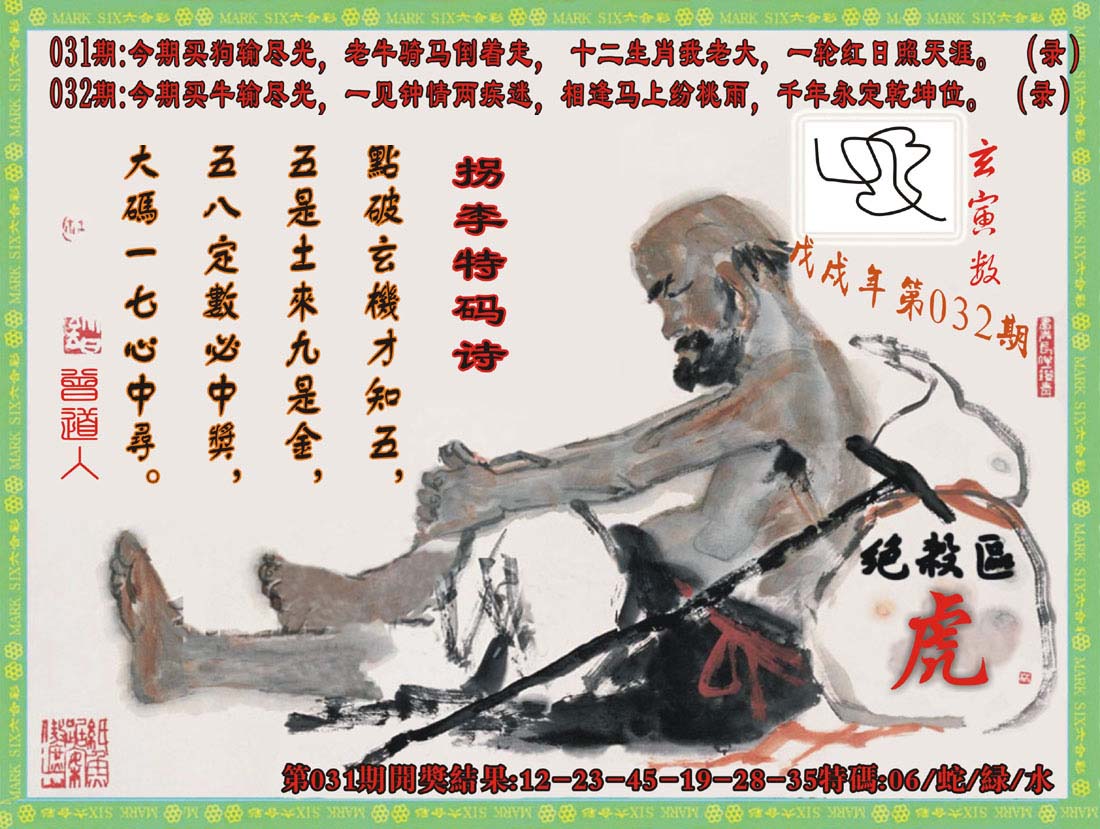 MARK SIX六合彩
031期:今期买狗输尽光，老牛骑马倒着走，十二生肖我老大，一轮红日照天涯。（录）
032期:今期买牛输尽光，一见钟情两疾迷，相逢马上纷桃雨，千年永定乾坤位。（录）
玄寅数
戊戌年第032期
拐李特码诗
點破玄機才知五，
五是土來九是金，
五八定數必中獎，
大碼一七心中尋。
曾道人
绝殺區
虎
第031期開獎結果:12-23-45-19-28-35特碼:06/蛇/緑/水